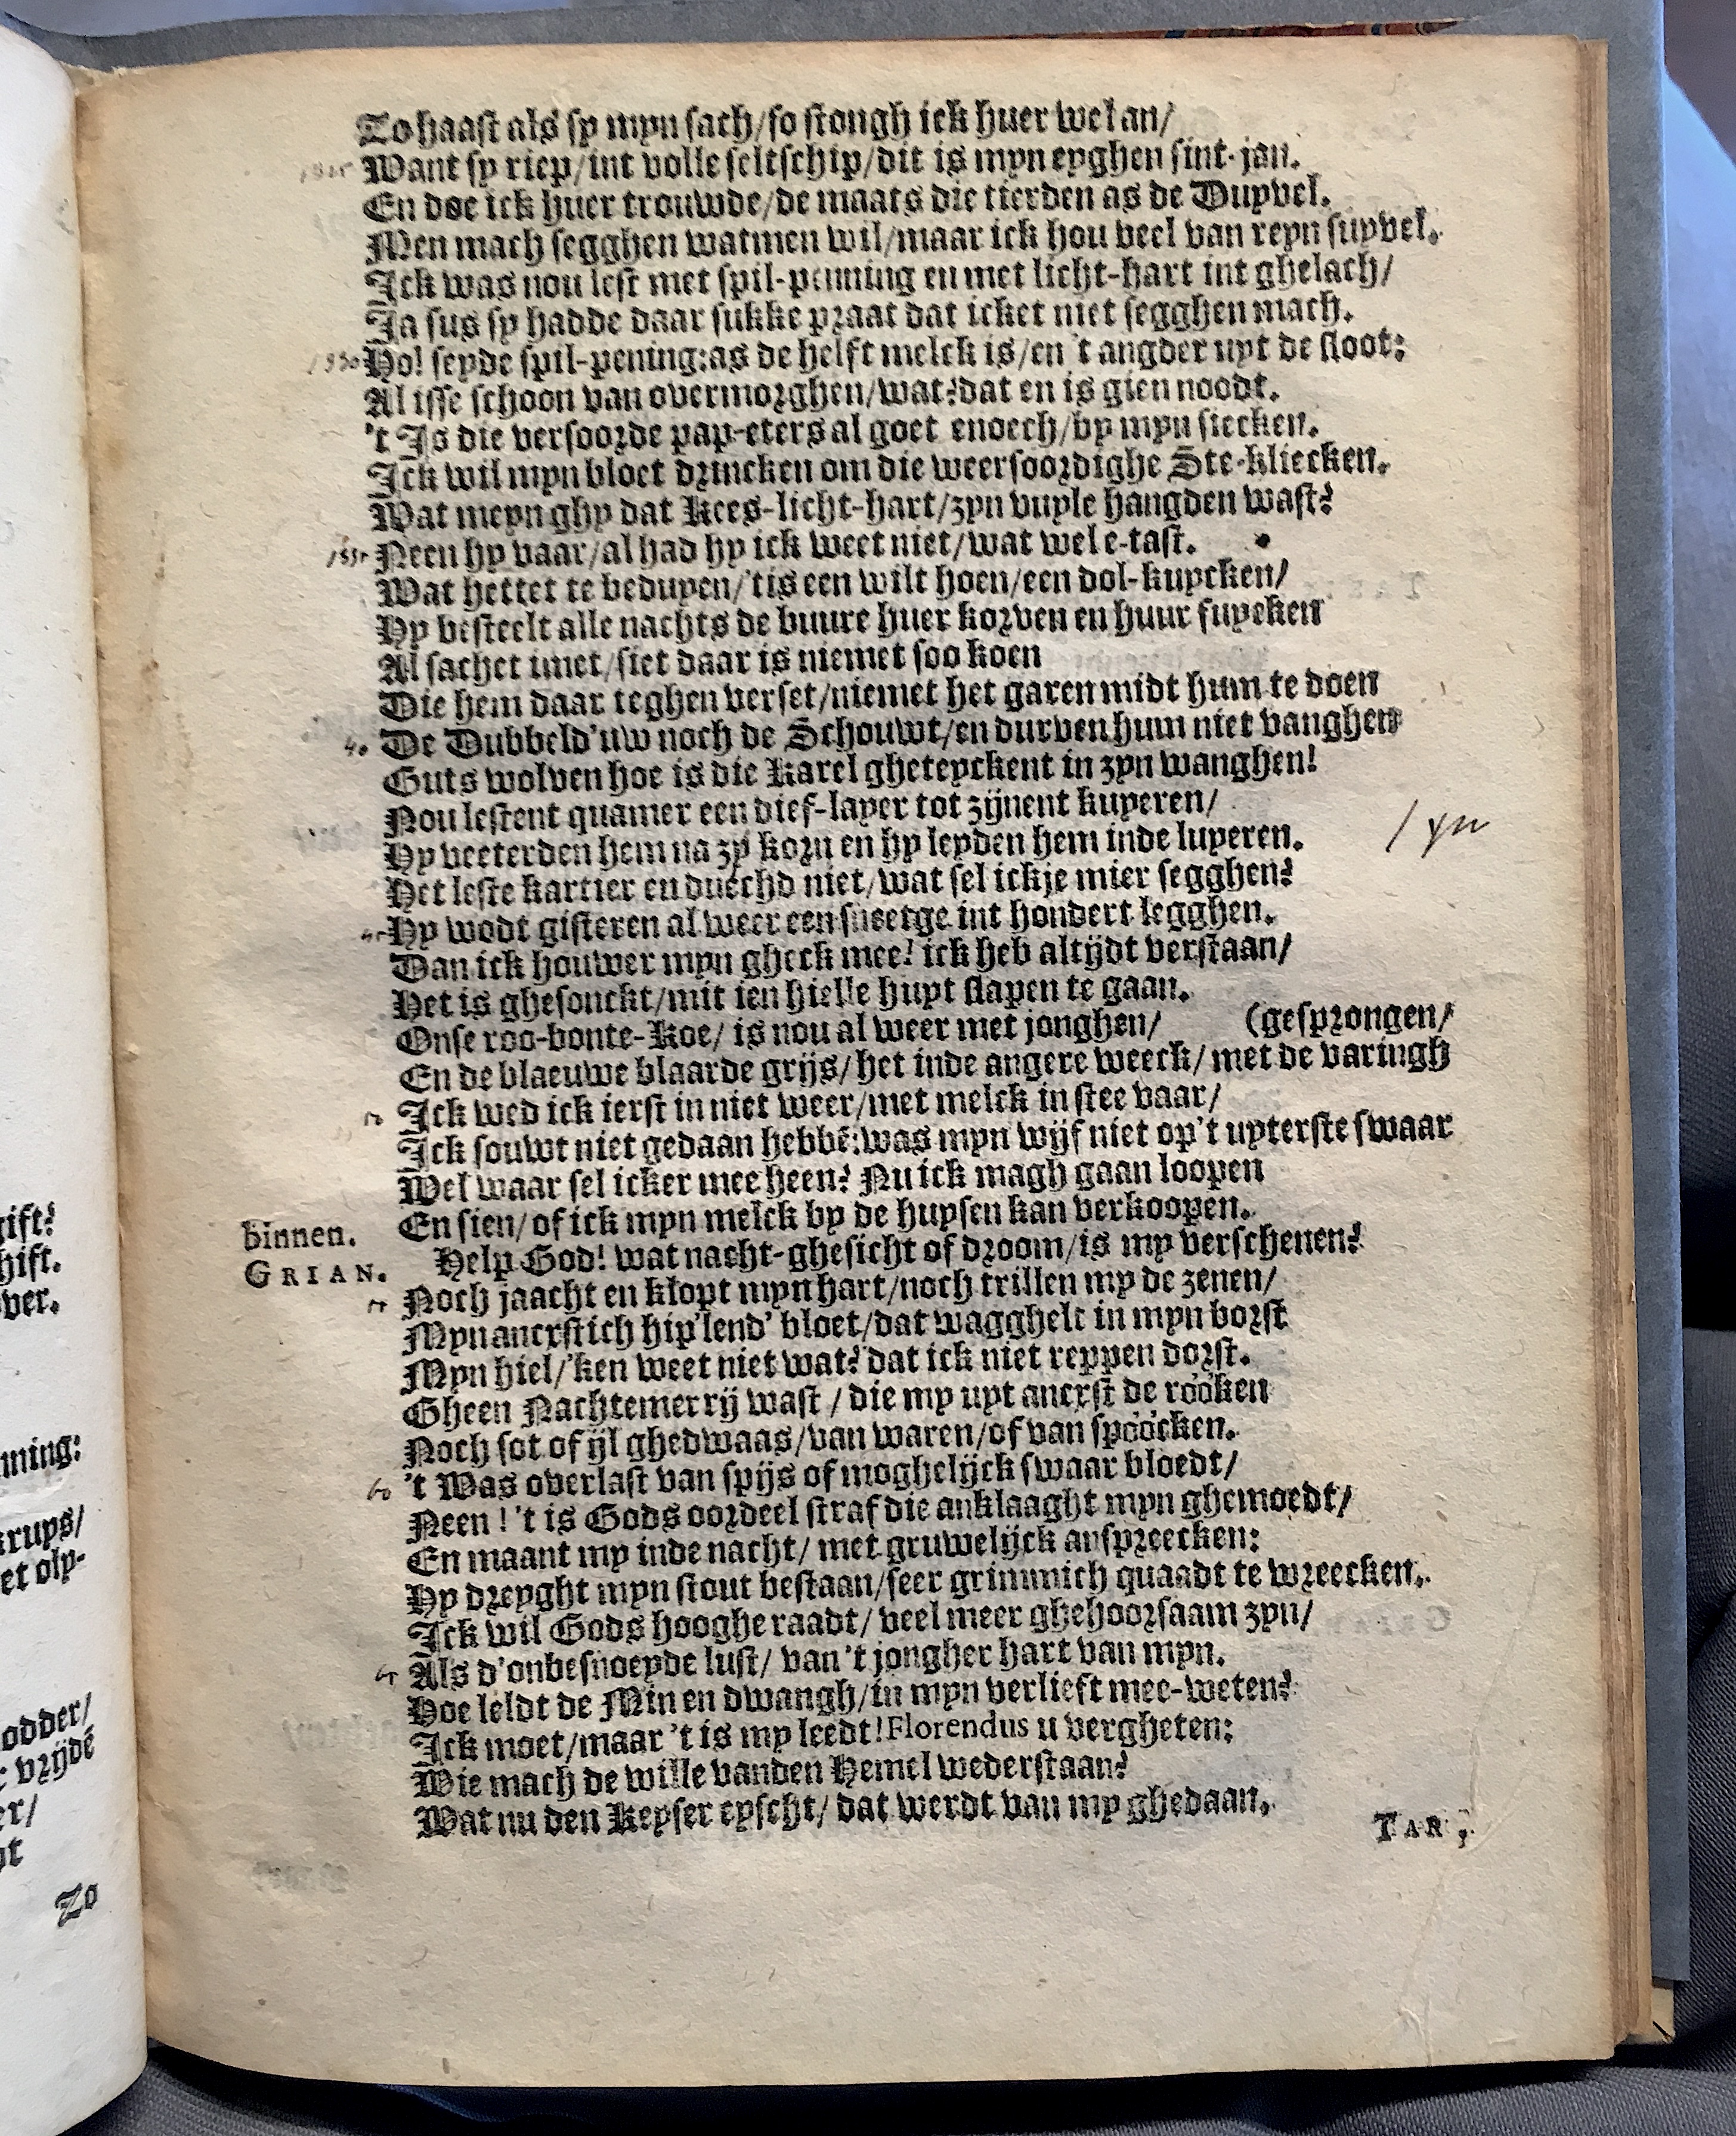 To haast als sy myn sach/so stongh ick huer wel an/
Want sy riep/int volle seltschip/dit is myn eyghen sint-jan.
En doe ick huer trouwde/de maats die tierden as de Duyvel.
Men mach segghen watmen wil/maar ick hou veel van reyn suyvel.
Ick was nou lest met spil-penning en met licht-hart int ghelach/
Ja sus sy hadde daar sukke praat dat icket niet segghen mach.
1530 Ho! seyde spil-pening:as de helft melck is/en 't angder uyt de sloot:
Al isse schoon van overmorghen/wat?dat en is gien noodt.
't Is die versoorde pap-eters al goet enoech/by myn siecken.
Ick wil myn bloet drincken om die weersoordighe Ste-kliecken.
Wat meyn ghy dat Kees-licht-hart/zyn vuyle hangden wast?
1535 Neen hy vaar/al had hy ick weet niet/wat wel e-tast.
Wat hettet te beduyen/'tis een wilt hoen/een dol-kuycken/
Hy besteelt alle nachts de buure huer korven en huur fuycken
Al sachet imet/siet daar is niemet soo koen
Die hem daar teghen verset/niemet het garen midt hum te doen
40 De Dubbeld'uw noch de Schouwt/en durven hum niet vanghen
Guts wolven hoe is die Karel gheteyckent in zyn wanghen!
Nou lestent quamer een dief-layer tot zijnent kuyeren/
Hy veeterden hem na zy korn en hy leyden hem inde luyeren. / yn
Het leste kartier en duechd niet/wat sel ickje mier segghen?
45 Hy wodt gisteren al weer een sneetge int hondert legghen.
Dan ick houwer myn gheck mee! ick heb altijdt verstaan/
Het is ghesonckt/mit ien hielle huyt slapen te gaan.
Onse roo-bonte-Koe/ is nou al weer met jonghen/ (gesprongen/
En de blaeuwe blaarde grijs/het inde angere weeck/ met de varingh
50 Ick wed ick ierst in niet weer/met melck in stee vaar/
Ick souwt niet gedaan hebbē:was myn wijf niet op't uyterste swaar
Wel waar sel icker mee heen? Nu ick magh gaan loopen
En sien/of ick myn melck by de huysen kan verkoopen.
binnen.
GRIAN. Help God! wat nacht-ghesicht of droom/is my verschenen?
55 Noch jaacht en klopt myn hart/noch trillen my de zenen/
Myn ancrstich hip'lend' bloet/dat wagghelt in myn borst
Myn hiel/'ken weet niet wat? dat ick niet reppen dorst.
Gheen Nachtemerrij wast / die my uyt ancxst de rooken
Noch sot of ijl ghedwaas/van waren/of van spoocken.
60 't Was overlast van spijs of moghelijck swaar bloedt/
Neen ! 't is Gods oordeel straf die anklaaght myn ghemoedt/
En maant my inde nacht/ met gruwelijck anspreecken:
Hy dreyght myn stout bestaan/seer grimmich quaadt te wreecken.
Ick wil Gods hooghe raadt/ veel meer ghehoorsaam zyn/
65 Als d'onbesnoeyde lust/ van 't jongher hart van myn.
Hoe leldt de Min en dwangh/in myn verlieft mee-weten?
Ick moet/maar 't is my leedt!Florendus u vergheten:
Wie mach de wille vanden Hemel wederstaan?
Wat nu den Keyser eyscht/ dat werdt van my ghedaan.
TAR.
ift?
hift.
ver.
nning:
krups/
et oly-
odder/
vrijdē
er/
Zo